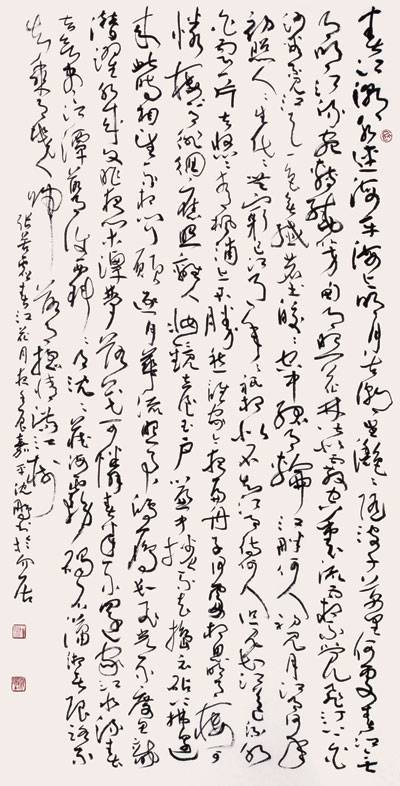 春江潮水连海平海上明月共潮生滟滟随波千万里何处春江无
月明江流宛转绕芳甸月照花林皆似霰空里流霜不觉飞汀上白
沙看不见江天一色无纤尘皎皎空中孤月轮江畔何人初见月江月何年
初照人人生代代无穷已江月年年祇相似不知江月待何人但见长江送流水
白云一片去悠悠青枫浦上不胜愁谁家今夜扁舟子何处相思明月楼可
怜楼上月徘徊应照离人妆镜台玉户帘中卷不去捣衣砧上拂还
来此时相望不相闻愿逐月华流照君鸿雁长飞光不度鱼龙
潜跃水成文昨夜闲潭梦落花可怜春半不还家江水流春
去欲尽江潭落月复西斜斜月沉沉藏海雾碣石潇湘无限路不
知乘月几人归落月摇情满江树
张若虚春江花月夜嘉平沈鹏书于介居